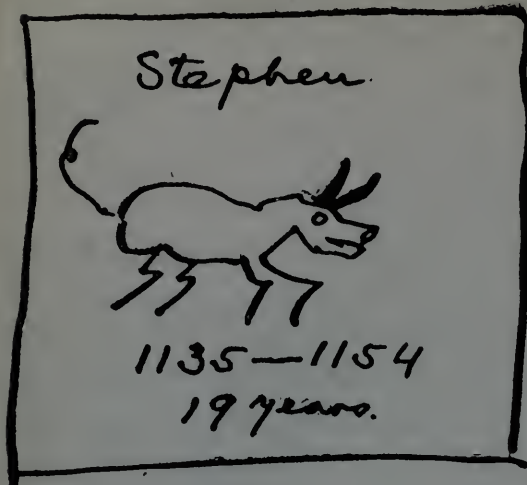 Stephen.
1135—1154
19 years.